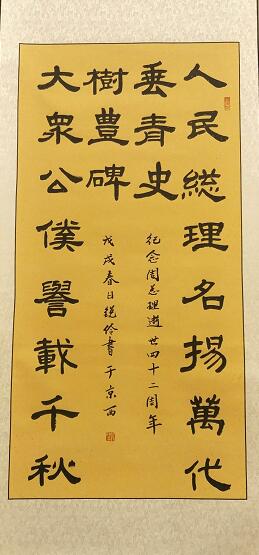 人民総理名揚萬代
垂青史
紀念周总理逝世四十二周年
樹豊碑
戊戌春日書于京西
大衆公僕譽載千秋